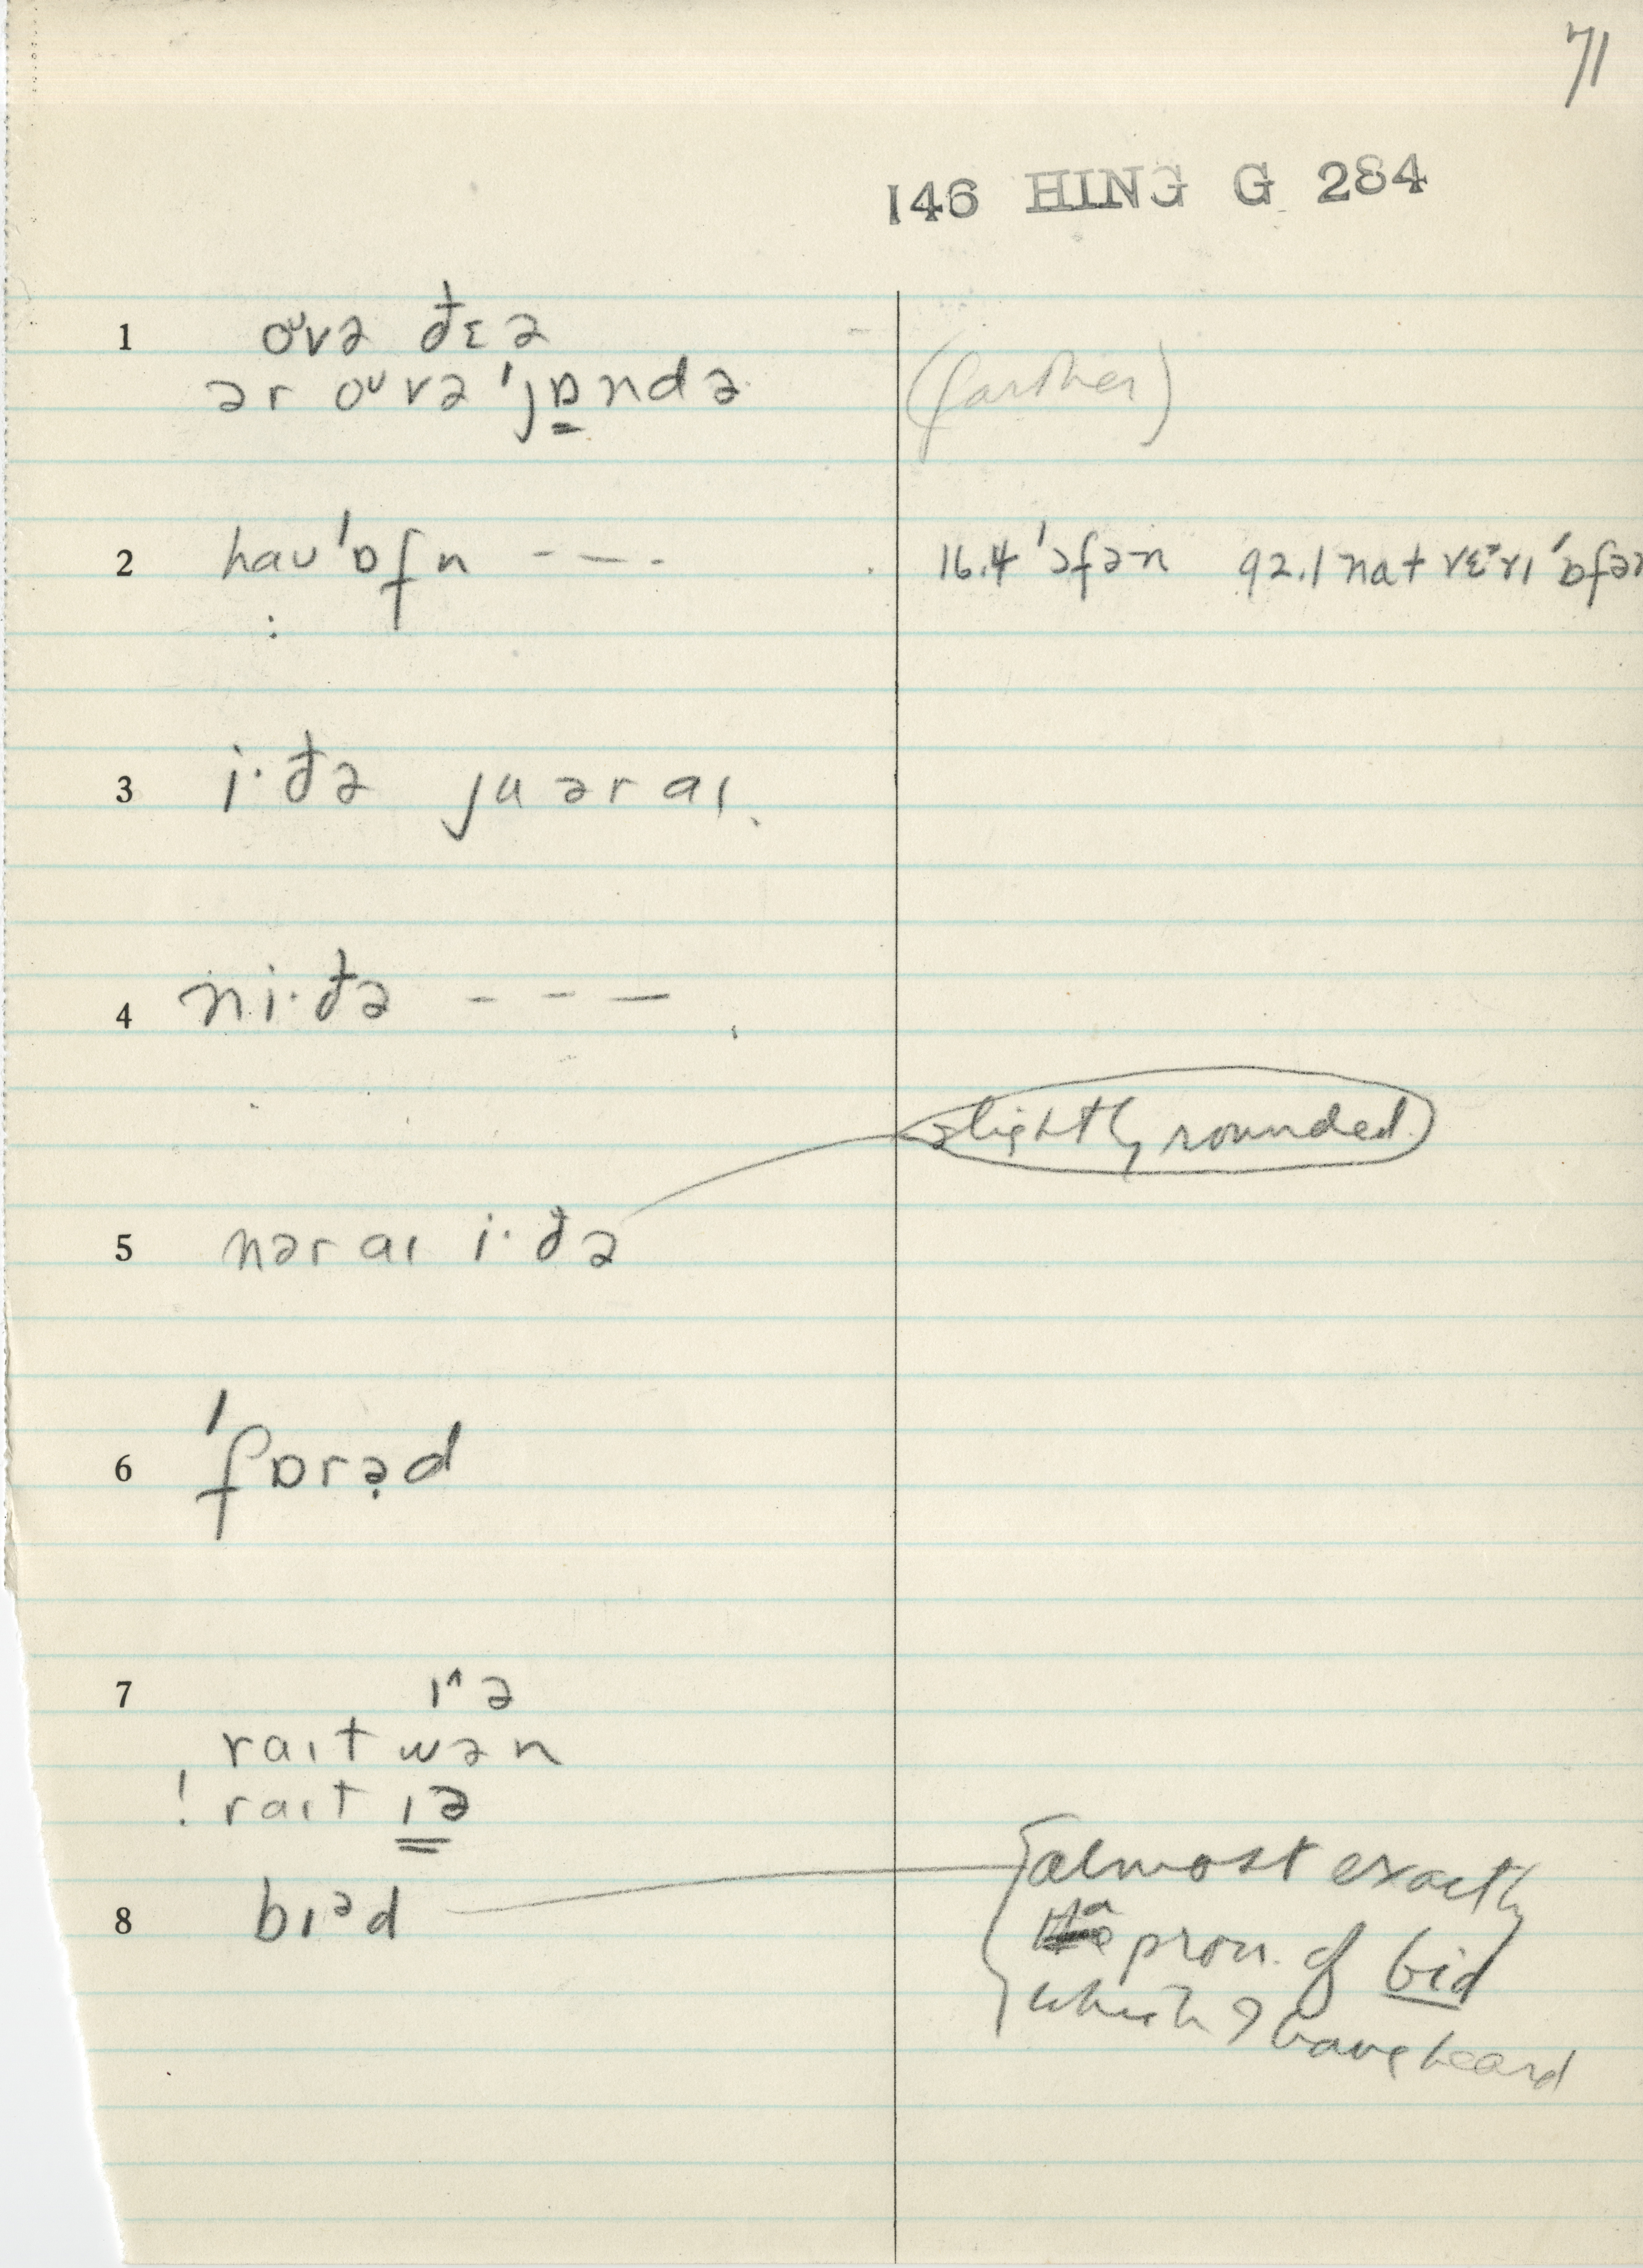 71
146 HING G 284
1 oᶷvə ðɛə
ər oᶷvə ˈjɒ̳ndə (farther)
2 haʊˈɒfn - — - 16.4 ˈɔfən 92.1 nat vɛᵊrɪ ˈɒfən
:
3 i·ðə ju ər aɪ
4 ni·ðə - - —
slightly rounded
5 nər aɪ i·ðə
6 ˈfɒrə̣d
7 ɪ^ə
raɪt wən
! raɪt ɪə
8 bɪᵊd almost exactly
a pron. of bid
which I have heard